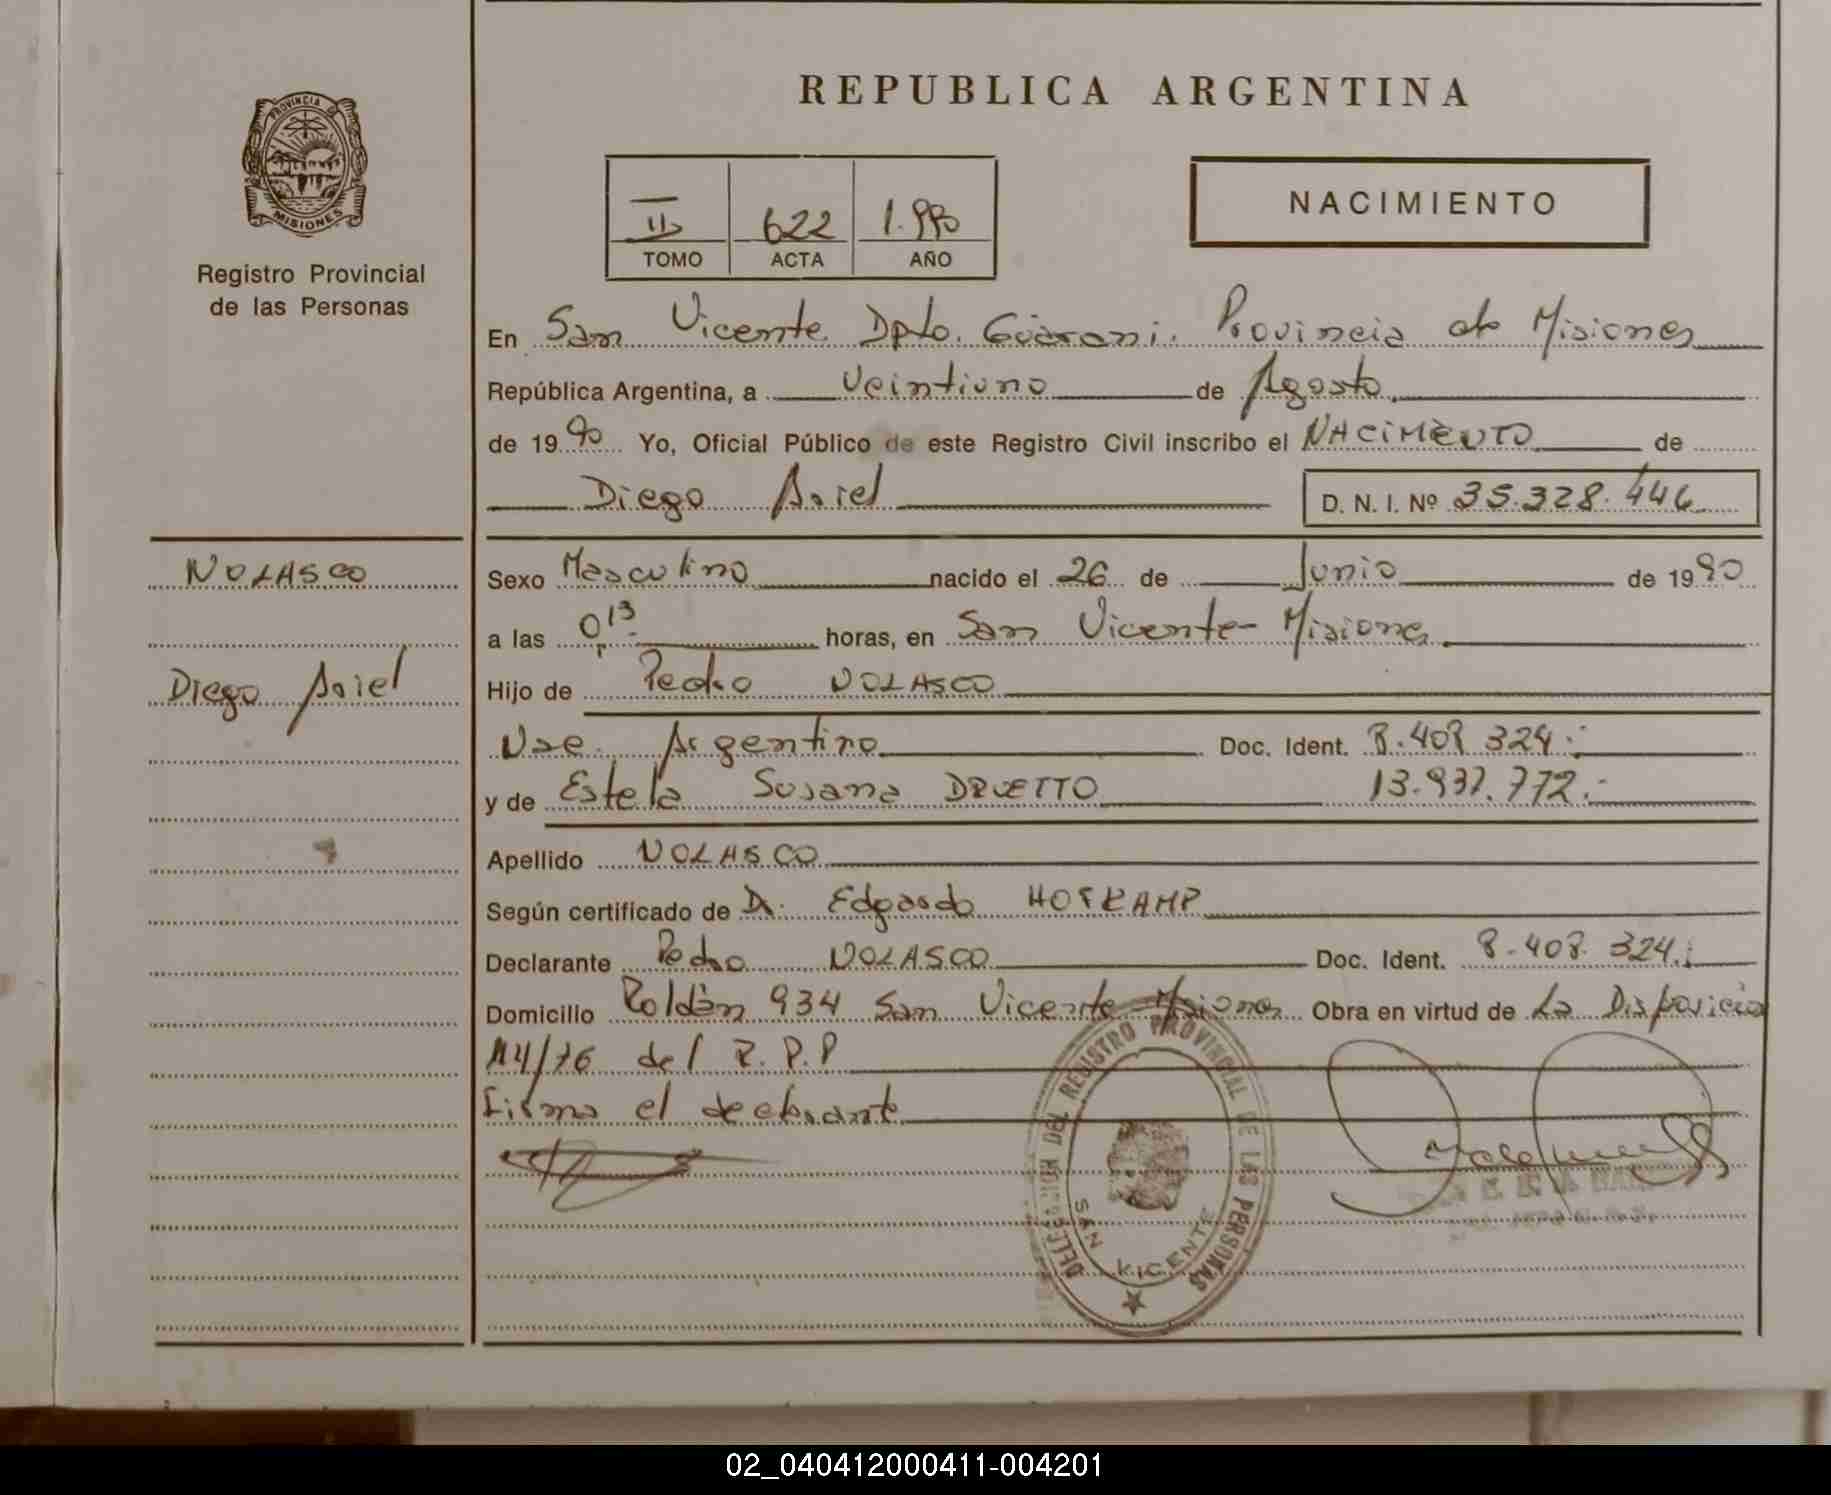 REPUBLICA ARGENTINA
PROVINCIA DE MISIONES
Registro Provincial
de las Personas
NACIMIENTO
II 622 1.990
TOMO ACTA AÑO
En San Vicente Dpto. Guarani. Provincia de Misiones
República Argentina, a veintiuno de Agosto
de 1990 Yo, Oficial Público de este Registro Civil inscribo el NACIMIENTO de
Diego Ariel D. N. I. Nº 35.328.446
NOLASCO
Diego Ariel
Sexo Masculino nacido el 26 de Junio de 1990
a las 0,13 horas, en San Vicente - Misiones
Hijo de Pedro NOLASCO
Nac. Argentino Doc. Ident. 8.408.324.-
y de Estela Susana DRUETTO 13.937.772.-
Apellido NOLASCO
Según certificado de Dr. Edgardo HOFKAMP
Declarante Pedro NOLASCO Doc. Ident. 8.408.324.-
Domicilio Roldán 934 San Vicente - Misiones Obra en virtud de La Disposición
14/76 del R.P.P
Firma el declarante
DELEGACION DEL REGISTRO PROVINCIAL DE LAS PERSONAS
SAN VICENTE
02_040412000411-004201